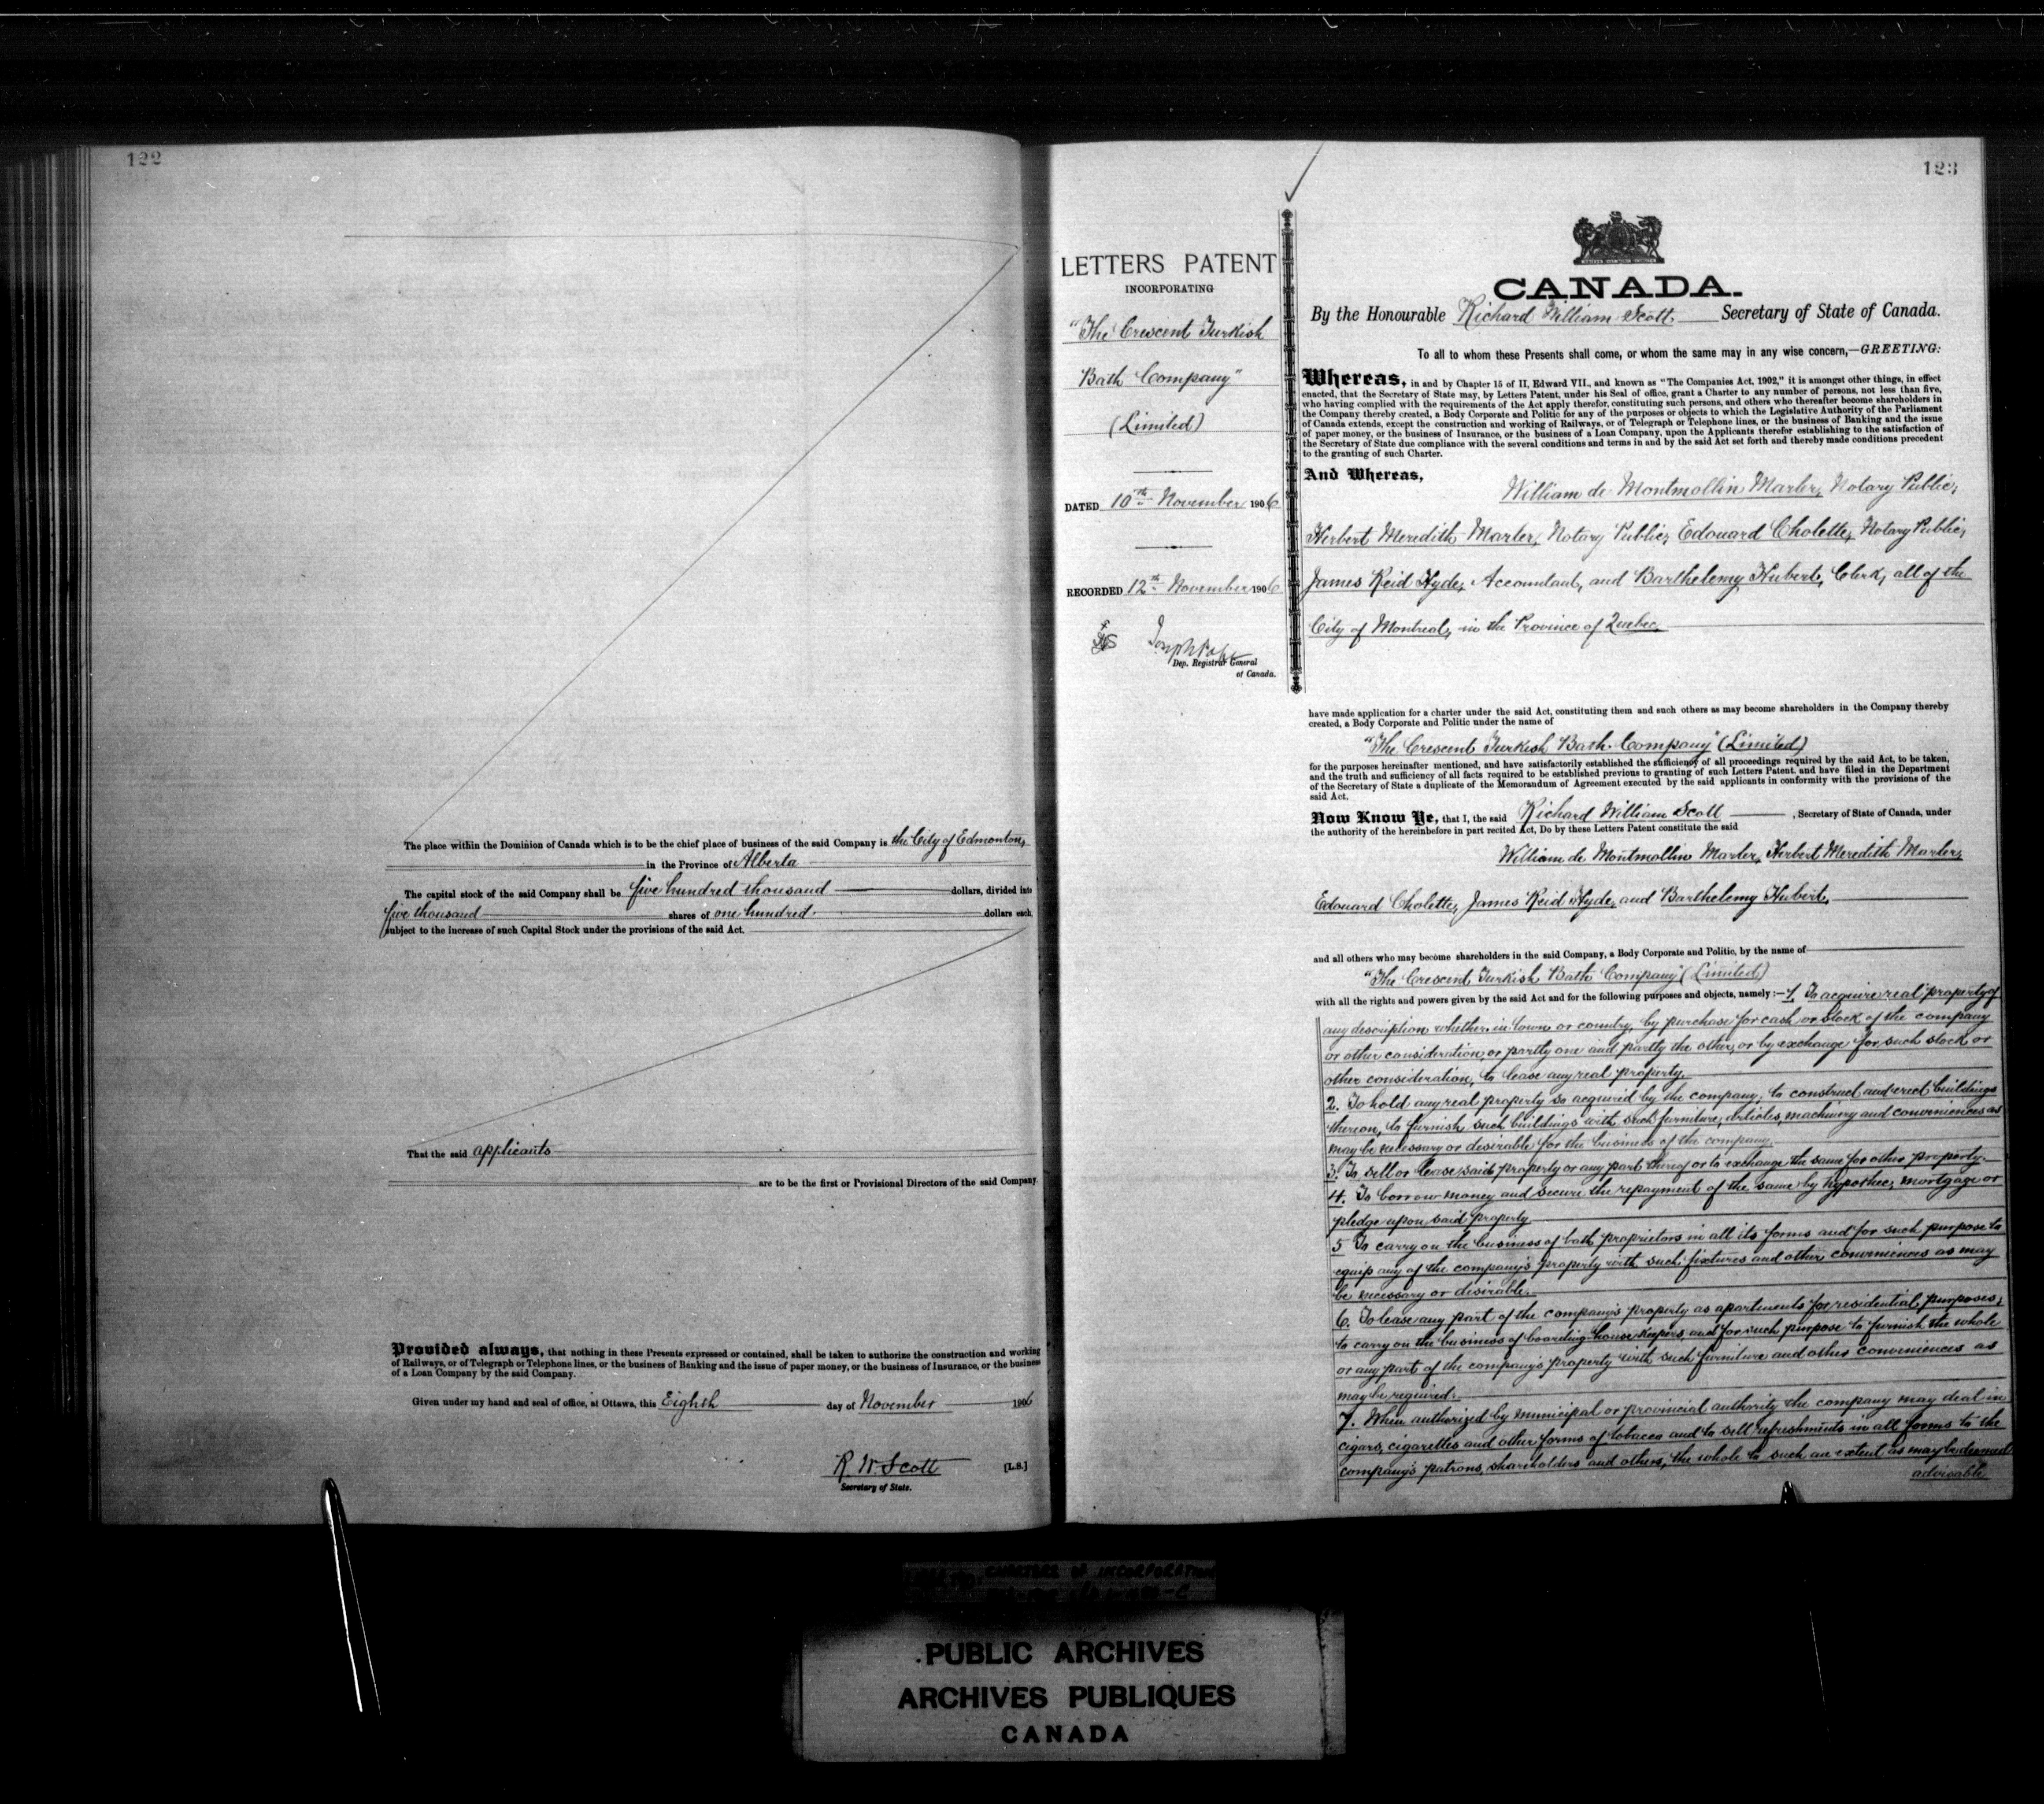 122
The place within the Dominion of Canada which is to be the chief place of business of the said Company is the City of Edmonton,
in the Province of Alberta
The capital stock of the said Company shall be five hundred thousand dollars, divided into
five thousand shares of one hundred dollars each,
subject to the increase of such Capital Stock under the provisions of the said Act.
That the said applicants
are to be the first or Provisional Directors of the said Company
Provided always, that nothing in these Presents expressed or contained, shall be taken to authorize the construction and working
of Railways, or of Telegraph or Telephone lines, or the business of Banking and the issue of paper money, or the business of Insurance, or the business
of a Loan Company by the said Company.
Given under my hand and seal of office, at Ottawa, this Eighth day of November 1906
R. W. Scott [L.S.]
Secretary of State.
123
LETTERS PATENT
INCORPORATING
"The Crescent Turkish
Bath Company"
(Limited)
DATED 10th November 1906
RECORDED 12th November 1906
Joseph Pope
Dep. Registrar General
of Canada.
CANADA.
By the Honourable Richard William Scott. Secretary of State of Canada.
To all to whom these Presents shall come, or whom the same may in any wise concern,—GREETING:
Whereas, in and by Chapter 15 of II, Edward VII., and known as "The Companies Act, 1902," it is amongst other things, in effect
enacted, that the Secretary of State may, by Letters Patent, under his Seal of office, grant a Charter to any number of persons, not less than five,
who having complied with the requirements of the Act apply therefor, constituting such persons, and others who thereafter become shareholders in
the Company thereby created, a Body Corporate and Politic for any of the purposes or objects to which the Legislative Authority of the Parliament
of Canada extends, except the construction and working of Railways, or of Telegraph or Telephone lines, or the business of Banking and the issue
of paper money, or the business of Insurance, or the business of a Loan Company, upon the Applicants therefor establishing to the satisfaction of
the Secretary of State due compliance with the several conditions and terms in and by the said Act set forth and thereby made conditions precedent
to the granting of such Charter.
And Whereas,
William de Montmollin Marler, Notary Public,
Herbert Meredith Marler, Notary Public, Edouard Cholette, Notary Public,
James Reid Hyde, Accountant, and Barthelemy Hubert, Clerk, all of the
City of Montreal, in the Province of Quebec,
have made application for a charter under the said Act, constituting them and such others as may become shareholders in the Company thereby
created, a Body Corporate and Politic under the name of
"The Crescent Turkish Bath Company" (Limited)
for the purposes hereinafter mentioned, and have satisfactorily established the sufficiency of all proceedings required by the said Act, to be taken,
and the truth and sufficiency of all facts required to be established previous to granting of such Letters Patent, and have filed in the Department
of the Secretary of State a duplicate of the Memorandum of Agreement executed by the said applicants in conformity with the provisions of the
said Act.
Now Know Ye, that I, the said Richard William Scott , Secretary of State of Canada, under
the authority of the hereinbefore in part recited Act, Do by these Letters Patent constitute the said
William de Montmollin Marler, Herbert Meredith Marler,
Edouard Cholette, James Reid Hyde, and Barthelemy Hubert,
and all others who may become shareholders in the said Company, a Body Corporate and Politic, by the name of
"The Crescent Turkish Bath Company" (Limited)
with all the rights and powers given by the said Act and for the following purposes and objects, namely:—1. To acquire real property of
any description whether in town or country, by purchase for cash or stock of the company
or other consideration, or partly one and partly the other, or by exchange for such stock or
other consideration, to lease any real property.
2. To hold any real property so acquired by the company, to construct and erect buildings
thereon, to furnish such buildings with such furniture, articles, machinery and conveniences as
may be necessary or desirable for the business of the company.
3. To sell or lease said property or any part thereof or to exchange the same for other property.
4. To borrow money and secure the repayment of the same by hypothec, mortgage or
pledge upon said property.
5 To carry on the business of bath proprietors in all its forms and for such purpose to
equip any of the company's property with such fixtures and other conveniences as may
be necessary or desirable.
6. To lease any part of the company's property as apartments for residential purposes,
to carry on the business of boarding-house keepers, and for such purpose to furnish the whole
or any part of the company's property with such furniture and other conveniences as
may be required.
7. When authorized by municipal or provincial authority the company may deal in
cigars, cigarettes and other forms of tobacco and to sell refreshments in all forms to the
company's patrons, shareholders and others, the whole to such an extent as may be deemed
advisable
CHARTERS OF INCORPORATION
PUBLIC ARCHIVES
ARCHIVES PUBLIQUES
CANADA